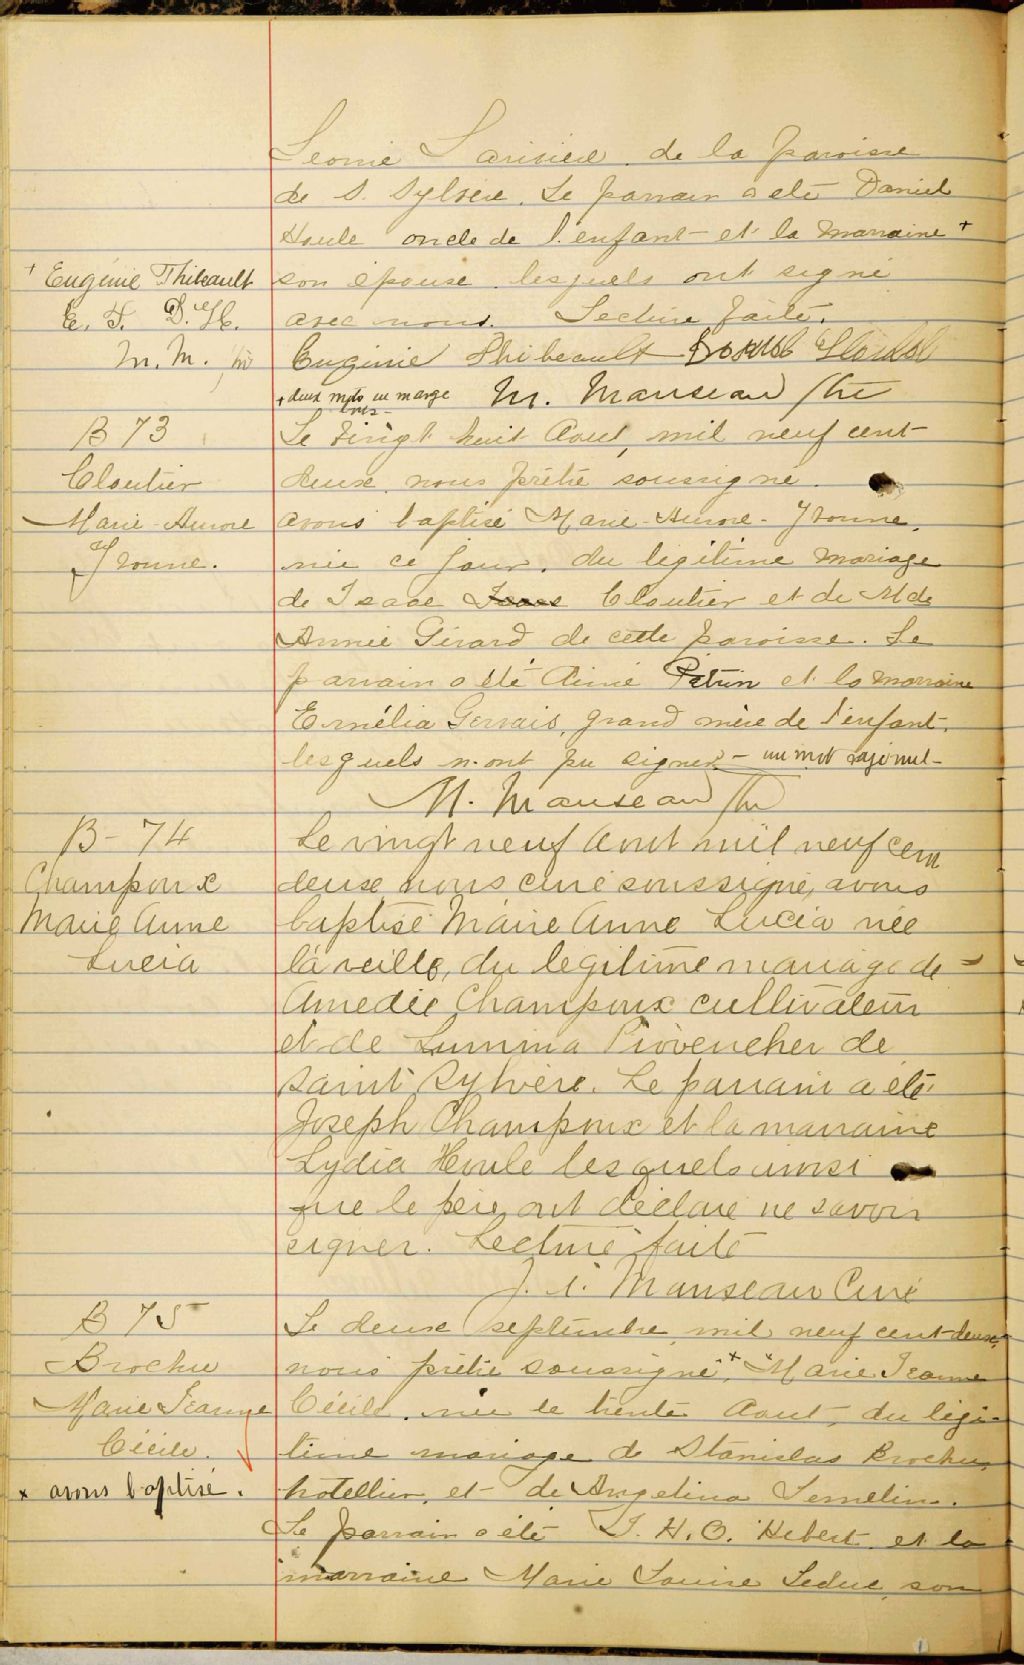 Leonie Larivière de la paroisse
de S. Sylvère. Le parrain a été Daniel
Houle oncle de l'enfant et la marraine +
+ Eugénie Thibeault
son épouse lesquels ont signé
E. T. D. H.
avec nous. Lecture faite.
M. M. ptr
Eugénie Thibeault Houle
+ deux mots en marge
M. Manseau Ptre
B 73
Le vingt huit Aout, mil neuf cent
Cloutier
deux, nous prêtre soussigné.
Marie-Aurore
avons baptisé Marie-Aurore-Yvonne,
Yvonne.
née ce jour, du légitime mariage
de Isaac Cloutier et de Md
Annie Girard de cette paroisse. Le
parrain a été Aimé Potvin et la marraine
Ernélia Gervais, grand mère de l'enfant,
lesquels n'ont pu signer - un mot rajouté -
M. Manseau Ptr
B - 74
Le vingt neuf Aout mil neuf cent
Champoux
deux nous curé soussigné, avons
Marie Anne
baptisé Marie Anne Lucia née
Lucia
la veille, du légitime mariage de
Amedée Champoux cultivateur
et de Lumina Provencher de
Saint Sylvère. Le parrain a été
Joseph Champoux et la marraine
Lydia Houle lesquels ainsi
que le père ont déclaré ne savoir
signer. Lecture faite
J. I. Manseau Curé
B 75
Le deux septembre mil neuf cent-deux,
Brochu
nous prêtre soussigné, x Marie Jeanne
Marie Jeanne
Cécile, née le trente Aout, du légi-
Cécile.
time mariage de Stanislas Brochu,
x avons baptisé.
hotellier, et de Angelina Lemelin.
Le parrain a été T. H. O. Hebert et la
marraine Marie Louise Leduc, son